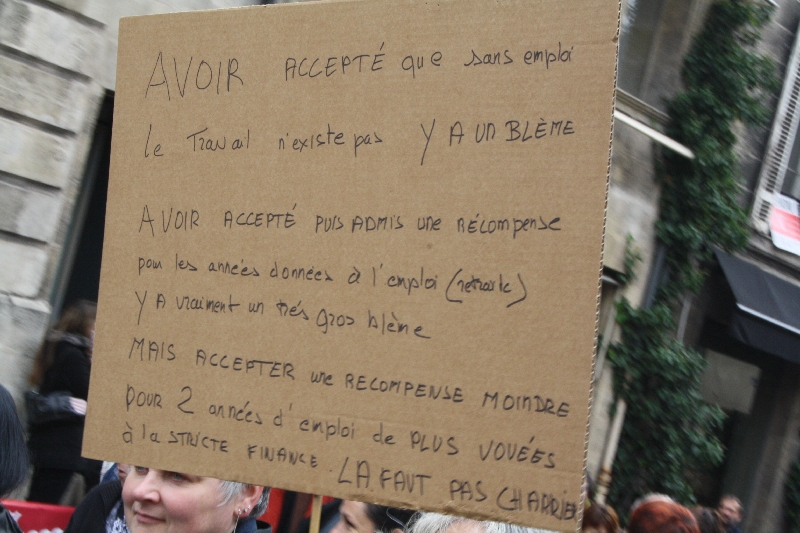 AVOIR ACCEPTÉ que sans emploi
le Travail n'existe pas Y A UN BLÈME
AVOIR ACCEPTÉ PUIS ADMIS une RÉCOMPENSE
pour les années données à l'emploi (retraite)
Y A vraiment un très gros blème
MAIS ACCEPTER une RECOMPENSE MOINDRE
POUR 2 années d'emploi de PLUS VOUÉES
à la STRICTE FINANCE. LA FAUT PAS CHARRIER